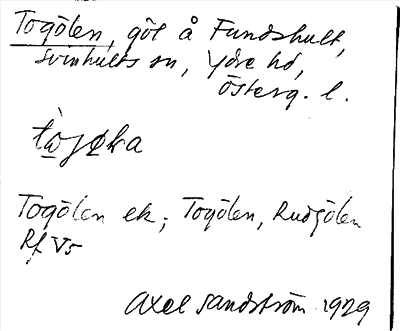 Togölen, göl å Fundshult,
Svinhults sn, Ydre hd,
Österg. l.
Togölen ek; Togölen, Rudgölen
Rf V5
Axel Sandström 1929